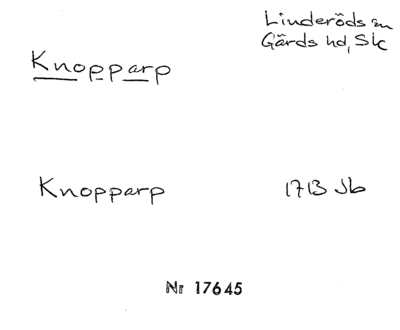 Linderöds sn
Gärds hd, Sk
Knopparp
Knopparp 1713 Jb
Nr 17645